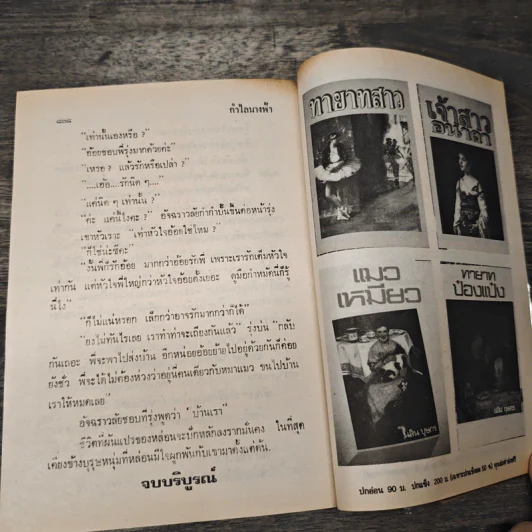 กำไลนางฟ้า
"เท่านั้นเองหรือ ?"
"อ้อยชอบพี่รุ่งมากด้วยค่ะ"
"เหรอ ? แล้วรักหรือเปล่า ?"
"....เอ้อ....รักนิด ๆ...."
"แค่นิด ๆ เท่านั้น ?"
"ค่ะ แค่นี้ไงคะ ?" อัจฉราวลัยกำกำปั้นขึ้นต่อหน้ารุ่ง
เขาหัวเราะ "เท่าหัวใจอ้อยใช่ไหม ?"
"ก็ใช่น่ะซีคะ"
"งั้นพี่ก็รักอ้อย มากกว่าอ้อยรักพี่ เพราะเรารักเต็มหัวใจ
เท่ากัน แต่หัวใจพี่ใหญ่กว่าหัวใจอ้อยตั้งเยอะ ดูมือกำหมัดนี่ก็รู้
นี่ไง"
"ก็ไม่แน่หรอก เล็กกว่าอาจรักมากกว่าก็ได้"
"ยังไม่ทันไรเลย เราทำท่าจะเถียงกันแล้ว" รุ่งบ่น "กลับ
กันเถอะ พี่จะพาไปส่งบ้าน อีกหน่อยอ้อยย้ายไปอยู่ด้วยกันก็ค่อย
ยังชั่ว พี่จะได้ไม่ต้องห่วงว่าอยู่ที่คนเดียวกับหมาแมว ขนไปบ้าน
เราให้หมดเลย"
อัจฉราวลัยชอบที่รุ่งพูดว่า "บ้านเรา"
ชีวิตที่ผันแปรของหล่อนจะปักหลักลงรากมั่นคง ในที่สุด
เคียงข้างบุรุษหนุ่มที่หล่อนมีใจผูกพันกับเขามาตั้งแต่ต้น.
จบบริบูรณ์
ทายาทสาว
เจ้าสาว
อนาถา
แมว
เหมียว
ทายาท
ป่องแป่ง
โสภี บุษกร
ปกอ่อน 90 บ. ปกแข็ง 200 บ.